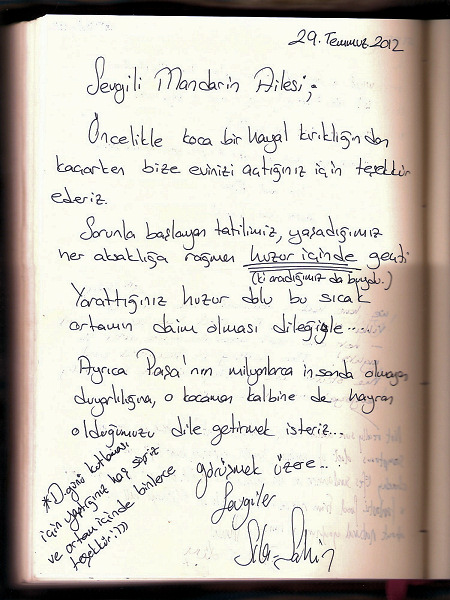 29. Temmuz 2012
Sevgili Mandarin Ailesi;
Öncelikle koca bir hayal kırıklığından
kaçarken bize evinizi açtığınız için teşekkür
ederiz.
Sorunla başlayan tatilimiz, yaşadığımız
her aksaklığa rağmen huzur içinde geçti
(ki aradığımız da buydu.)
Yarattığınız huzur dolu bu sıcak
ortamın daim olması dileğiyle....
Ayrıca Paşa'nın milyonlarca insanda olmayan
duyarlılığına, o kocaman kalbine de hayran
olduğumuzu dile getirmek isteriz...
görüşmek üzere..
Sevgiler
*D.günü kutlaması
için yaptığınız hoş sürpriz
ve ortam içinde binlerce
teşekkür:)))